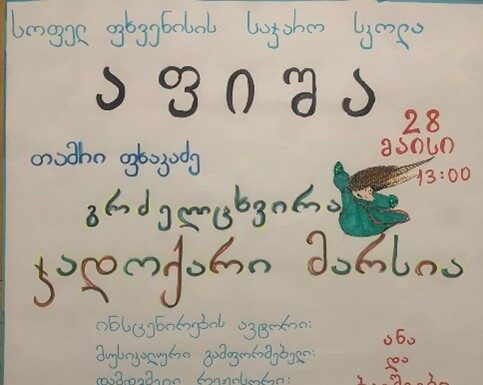 სოფელ ფხვენისის საჯარო სკოლა
აფიშა
28
მაისი
13:00
თამრი ფხაკაძე
გრძელცხვირა
ჯადოქარი მარსია
ინსცენირების ავტორი:
მუსიკალური გამფორმებელი:
დამდგმელი რეჟისორი:
ანა
და